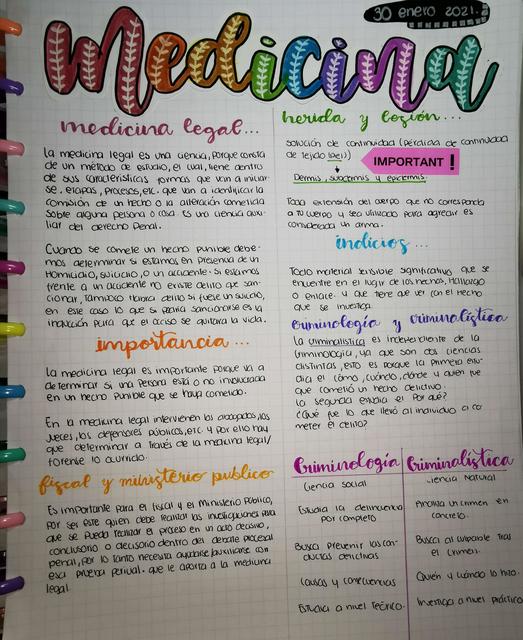 30 enero 2021.
Medicina
medicina legal...
la medicina legal es una ciencia, porque consta
de un método de estudio, el cual tiene dentro
de sus características formas que van a iniciar-
se, etapas, procesos, etc. que van a identificar la
comisión de un hecho o la alteración cometida
sobre alguna persona o cosa. Es una ciencia auxi-
liar del derecho Penal.
Cuando se comete un hecho punible debe-
mos determinar si estamos en presencia de un
Homicidio, suicidio, o un accidente. Si estamos
frente a un accidente no existe delito que san-
cionar, tampoco habrá delito si fuese un suicidio,
en este caso lo que si podria sancionarse es la
inducción para que el occiso se quitara la vida.
importancia...
La medicina legal es importante porque va a
determinar si una persona está o no involucrada
en un hecho punible que se haya cometido.
En la medicina legal intervienen los abogados, los
jueces, los defensores públicos, etc. y por ello hay
que determinar a través de la medicina legal/
forense lo ocurrido.
fiscal y ministerio publico
Es importante para el fiscal y el Ministerio Público,
por ser este quien debe realizar las investigaciones para
que se pueda realizar el proceso en un acto decisivo,
conclusorio o decisorio dentro del debate procesal
penal, por lo tanto necesita ayudarse/auxiliarse con
esa prueba pericial. que le aporta a la medicina
legal.
herida y lesión...
solución de continuidad (pérdida de continuidad
de tejido (piel))
IMPORTANT !
Dermis, subdermis y epidermis.
Toda extensión del cuerpo que no corresponda
a tu cuerpo y sea utilizado para agredir es
considerada un arma.
indicios...
Todo material sensible significativo que se
encuentre en el lugar de los hechos, Hallazgo
o enlace. y que tiene que ver con el hecho
que se investiga.
Criminología y criminalística
La criminalística es independiente de la
criminología, ya que son dos ciencias
distintas, esto es porque la primera estu-
dia el cómo, cuándo, dónde y quien fue
que cometió un hecho delictivo.
la segunda estudia el Por qué?
¿Qué fue lo que llevó al individuo a co-
meter el delito?
Criminología Criminalística
Ciencia social ciencia natural
Estudia la delincuencia Analiza un crimen en
por completo concreto.
Busca prevenir las con- Busca al culpable tras
ductas delictivas el crimen.
Causas y consecuencias Quién y cuándo lo hizo.
Estudia a nivel teórico. Investiga a nivel práctico